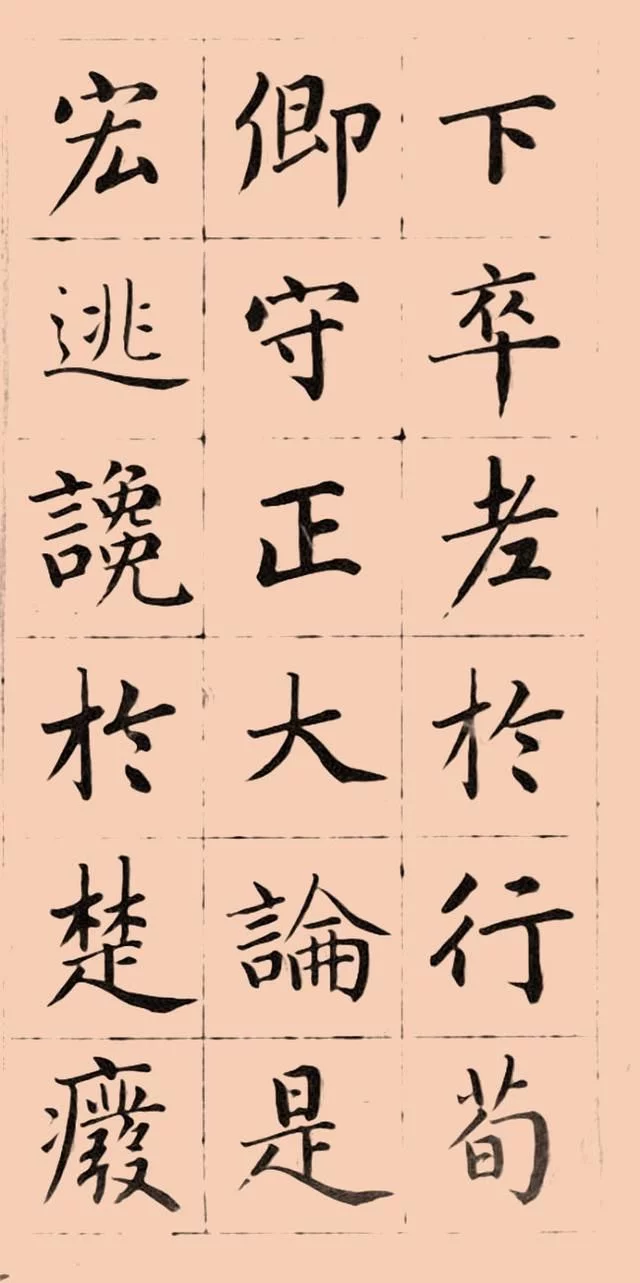 下卒老於行荀
卿守正大論是
宏逃讒於楚癈